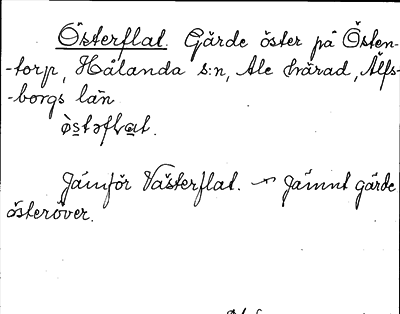 Österflat. Gärde öster på Östen-
-torp, Hålanda s:n, Ale härad, Älfs-
-borgs län
Jämför Västerflat. Jämnt gärde
österöver.